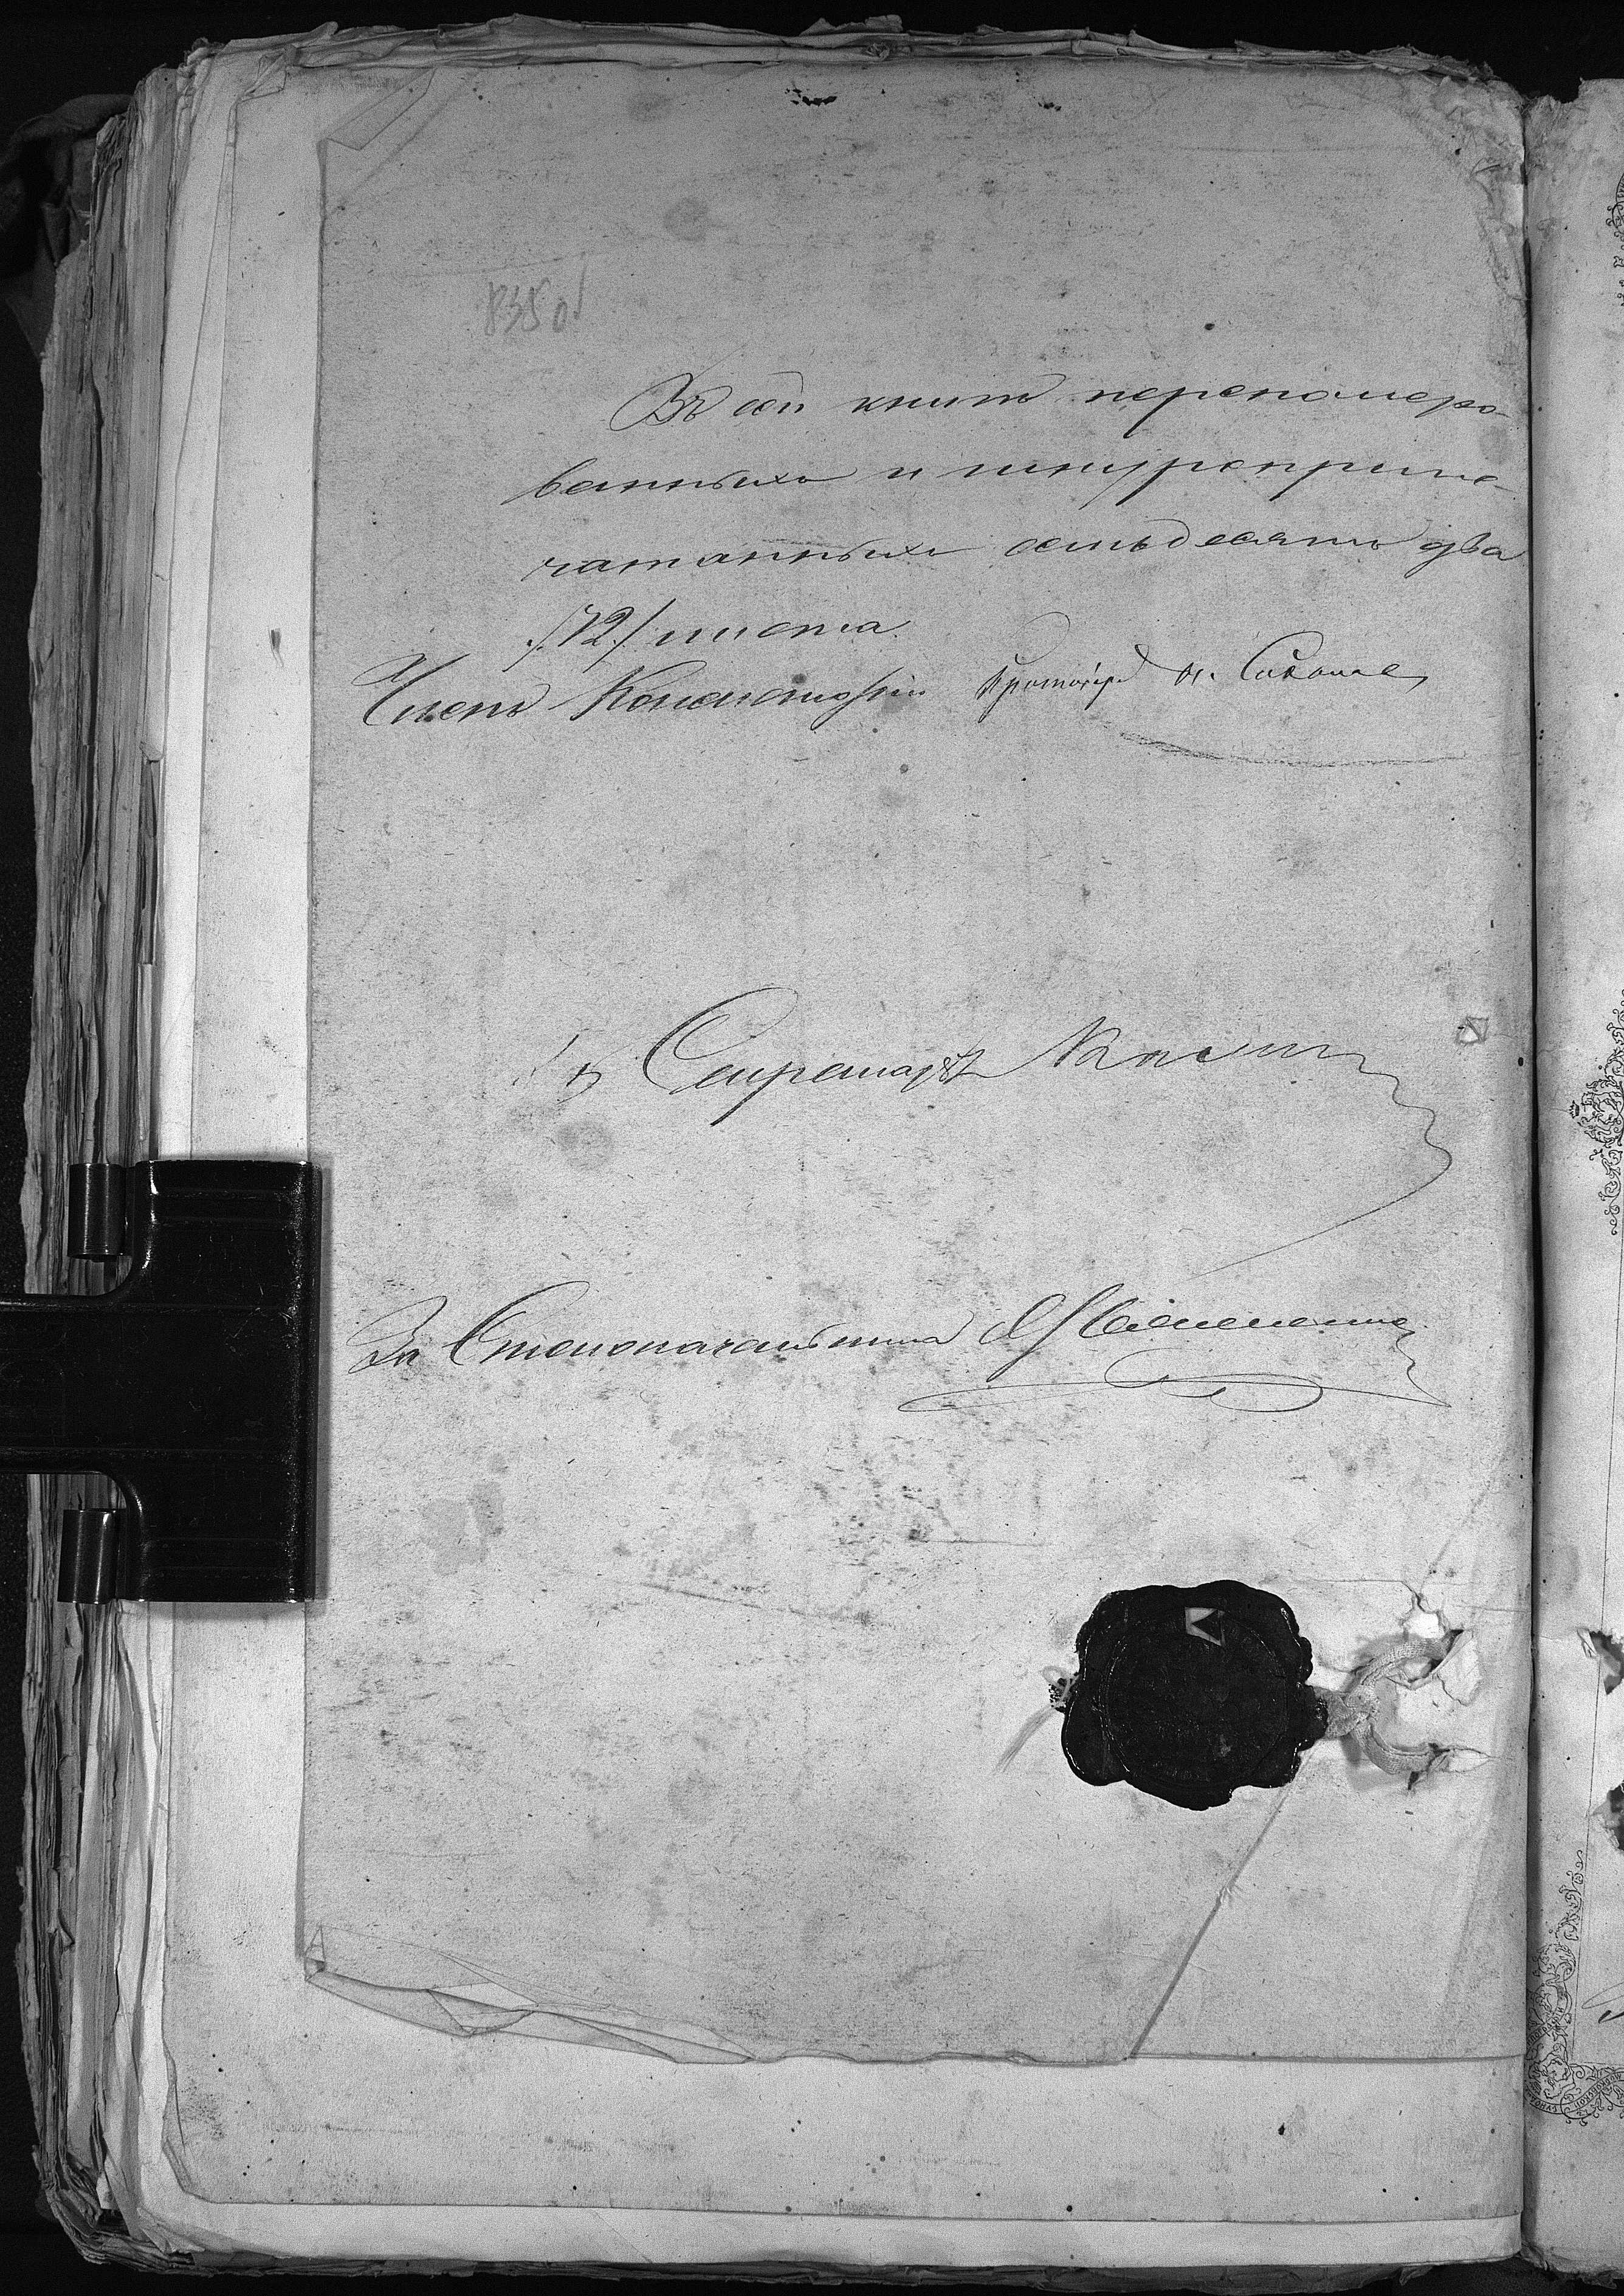 835 об
Въ сей книгѣ перенумеро-
ванныхъ и шнуроприпе-
чатанныхъ семьдесятъ два
/:72:/ листа.
Членъ Консисторіи Протоіер. Н. Соколов
Секретарь
За Столоначальника